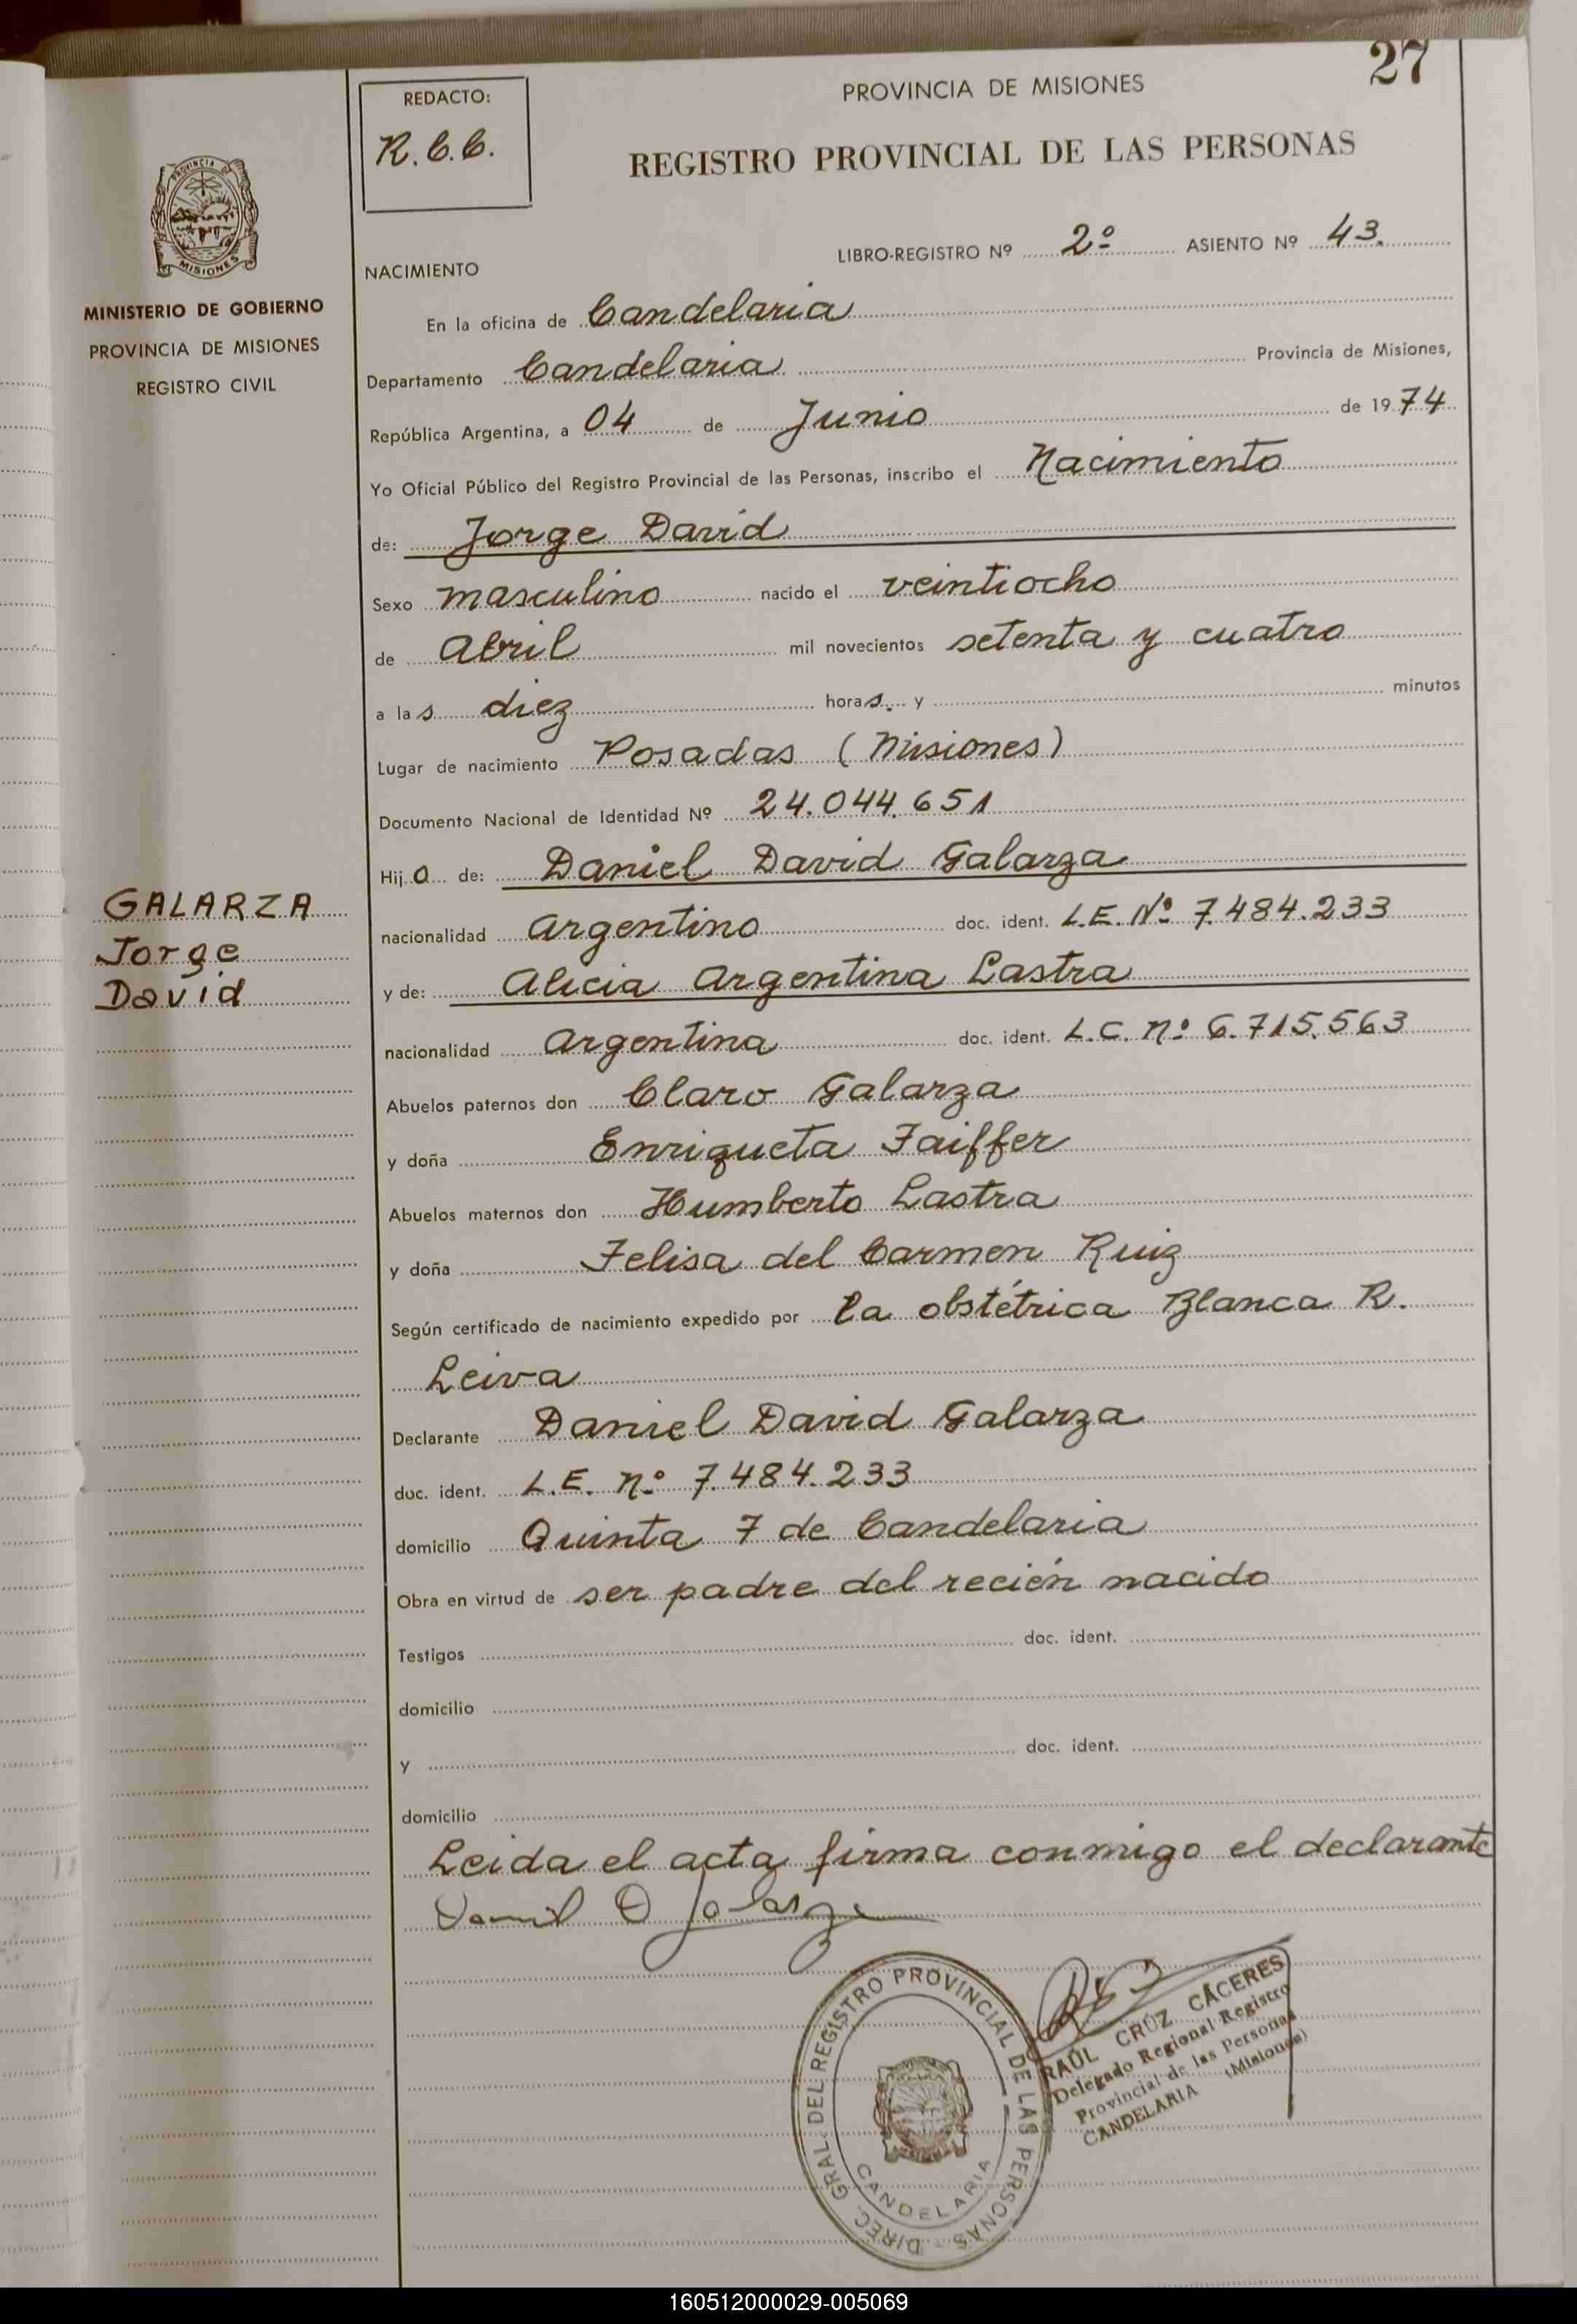 27
REDACTO:
R.C.C.
PROVINCIA DE MISIONES
REGISTRO PROVINCIAL DE LAS PERSONAS
PROVINCIA DE
MISIONES
MINISTERIO DE GOBIERNO
PROVINCIA DE MISIONES
REGISTRO CIVIL
LIBRO-REGISTRO Nº 2º ASIENTO Nº 43.
NACIMIENTO
En la oficina de Candelaria
Departamento Candelaria Provincia de Misiones,
República Argentina, a 04 de Junio de 1974
Yo Oficial Público del Registro Provincial de las Personas, inscribo el Nacimiento
de: Jorge David
Sexo masculino nacido el veintiocho
de Abril mil novecientos setenta y cuatro
a las diez horas. y minutos
Lugar de nacimiento Posadas (Misiones)
Documento Nacional de Identidad Nº 24.044.651
Hijo de: Daniel David Galarza
GALARZA
Jorge
David
nacionalidad Argentino doc. ident. L.E. Nº 7.484.233
y de: Alicia Argentina Lastra
nacionalidad Argentina doc. ident. L.C. Nº 6.715.563
Abuelos paternos don Claro Galarza
y doña Enriqueta Faiffer
Abuelos maternos don Humberto Lastra
y doña Felisa del Carmen Ruiz
Según certificado de nacimiento expedido por La obstétrica Blanca R.
Leiva
Declarante Daniel David Galarza
doc. ident. L.E. Nº 7.484.233
domicilio Quinta 7 de Candelaria
Obra en virtud de ser padre del recién nacido
Testigos doc. ident.
domicilio
y doc. ident.
domicilio
Leida el acta firma conmigo el declarante
Daniel D Galarza
DIREC. GRAL. DEL REGISTRO PROVINCIAL DE LAS PERSONAS
CANDELARIA
RAÚL CRUZ CÁCERES
Delegado Regional Registro
Provincial de las Personas
CANDELARIA (Misiones)
160512000029-005069